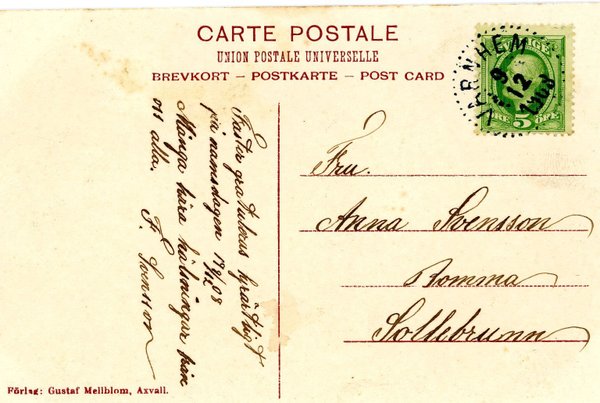 CARTE POSTALE
UNION POSTALE UNIVERSELLE
BREVKORT – POSTKARTE – POST CARD
VARNHEM
9
12
1908
SVERIGE
ÖRE 5 ÖRE
Faster gratuleras hjärtligt
på namsdagen 19 9/12 08
Många kära hälsningar från
oss alla.
F. Svensson
Fru.
Anna Svensson
Bomma
Sollebrunn
Förlag: Gustaf Mellblom, Axvall.